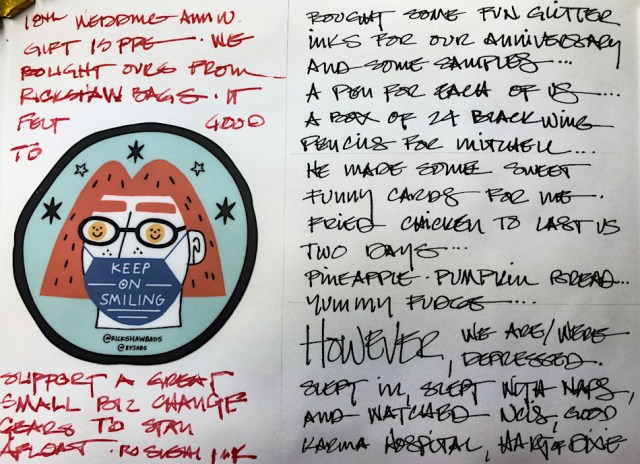 10th WEDDING ANNIV.
GIFT IS PPE. WE
BOUGHT OURS FROM
RICKSHAW BAGS. IT
FELT GOOD
TO
KEEP
ON
SMILING
@RICKSHAWBAGS
SUPPORT A GREAT
SMALL BIZ CHANGE
GEARS TO STAY
AFLOAT. INK
BOUGHT SOME FUN GLITTER
INKS FOR OUR ANNIVERSARY
AND SOME SAMPLES....
A PEN FOR EACH OF US....
A BOX OF 24 BLACKWING
PENCILS FOR MITCHELL...
HE MADE SOME SWEET
FUNNY CARDS FOR ME.
FRIED CHICKEN TO LAST US
TWO DAYS...
PINEAPPLE. PUMPKIN BREAD...
YUMMY FUDGE....
HOWEVER, WE ARE/WERE
DEPRESSED.
SLEPT IN, SLEPT WITH NAPS,
AND WATCHED NCIS, GOOD
KARMA HOSPITAL, HART OF DIXIE